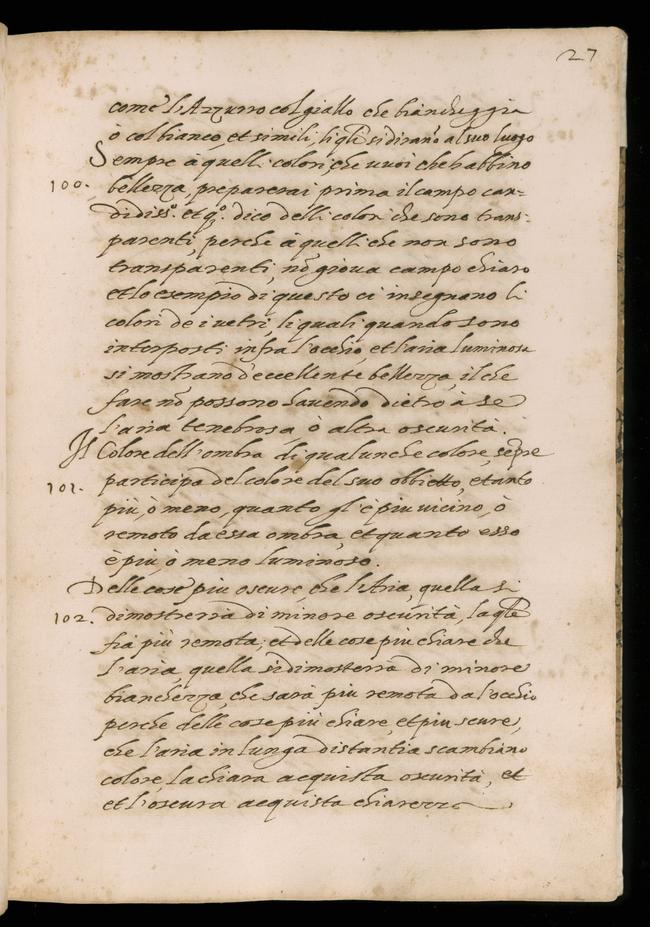 27
come l'Azzurro col giallo che biancheggia
ò col bianco, et simili, li qli si dirano al suo luogo
Sempre à quelli colori che vuoi che habbino
100. bellezza, preparerai prima il campo can-
didiss.º et q.º dico delli colori che sono trans-
parenti, perche à quelli che non sono
transparenti, nõ giova campo chiaro
et lo esempio di questo ci insegnano li
colori de i vetri, li quali quando sono
interposti infra l'occhio et l'aria luminosa
si mostrano d'eccellente bellezza, il che
fare nõ possono havendo dietro à se
l'aria tenebrosa ò altra oscurità.
Il Colore dell'ombra di qualunche colore, sẽpre
101. participa del colore del suo obbietto, et tanto
più, ò meno, quanto gl'è piu vicino, ò
remoto da essa ombra, et quanto esso
è più, ò meno luminoso.
Delle cose piu oscure, che l'Aria, quella si
102. dimostrerrà di minore oscurità, la qle
fia più remota; et delle cose piu chiare che
l'aria, quella si dimosterrà di minore
bianchezza, che sarà più remota da l'occhio
perche delle cose più chiare, et piu scure,
che l'aria in lunga distantia scambiano
colore, la chiara acquista oscurità, et
et l'oscura acquista chiarezza.